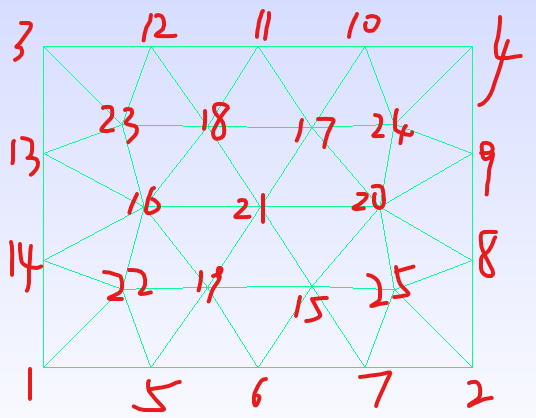 3 12 11 10 4
23 18 17 24
13 9
16 21 20
14 8
22 19 15 25
1 5 6 7 2